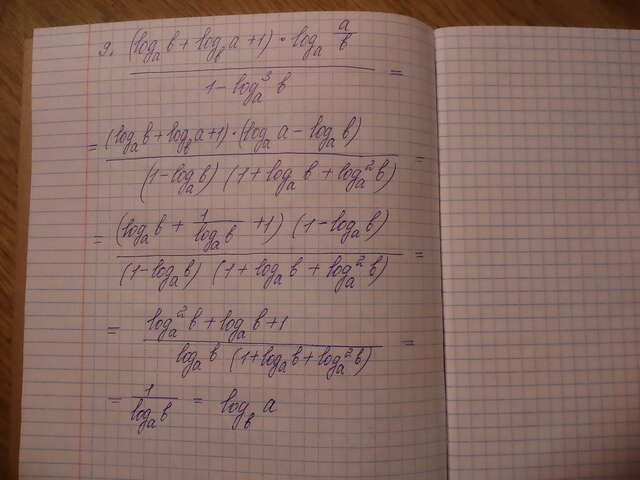 9. (log_a b + log_b a + 1) · log_a a/b
1 - log_a^3 b =
= (log_a b + log_b a + 1) · (log_a a - log_a b)
(1 - log_a b) (1 + log_a b + log_a^2 b) =
= (log_a b + 1/log_a b + 1) (1 - log_a b)
(1 - log_a b) (1 + log_a b + log_a^2 b) =
= log_a^2 b + log_a b + 1
log_a b (1 + log_a b + log_a^2 b) =
= 1/log_a b = log_b a